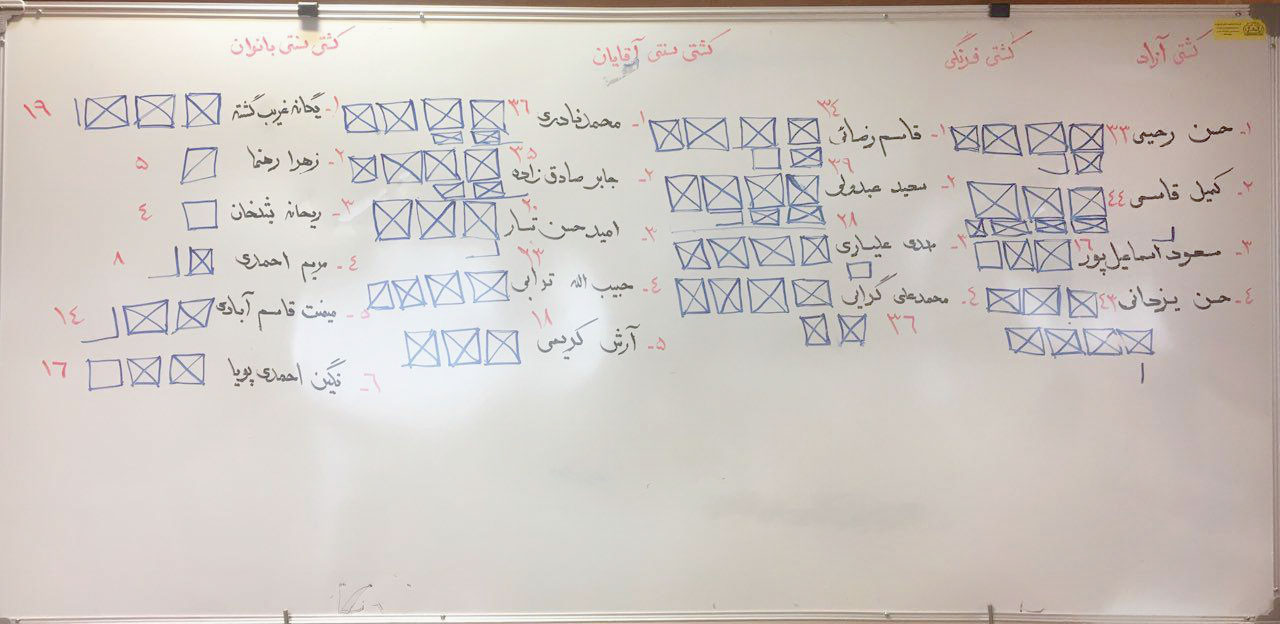 کشتی آزاد
۱- حسن رحیمی ۳۳
۲- کمیل قاسمی ۴۴
۳- مسعود اسماعیل پور ۱۶
۴- حسن یزدانی ۴۲
کشتی فرنگی
۱- قاسم رضائی ۳۴
۲- سعید عبدولی ۳۹
۳- مهدی علیاری ۲۸
۴- محمدعلی گرایی ۳۶
کشتی سنتی آقایان
۱- محمد نادری ۳۶
۲- جابر صادق زاده ۳۵
۳- امید حسن تبار ۲۰
۴- حبیب الله ترابی ۲۳
۵- آرش کریمی ۱۸
کشتی سنتی بانوان
۱- یگانه غریب گشته ۱۹
۲- زهرا رهنما ۵
۳- ریحانه ۴
۴- مریم احمدی ۸
۵- میمنت قاسم آبادی ۱۴
۶- نگین احمدی پویا ۱۶